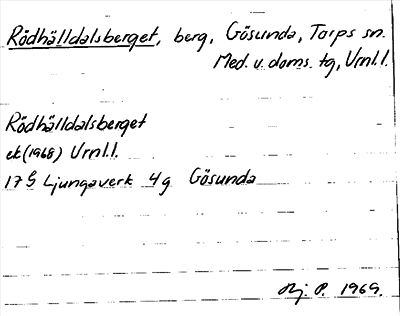 Rödhälldalsberget, berg, Gösunda, Torps sn.
Med. v. doms. tg, Vrnl.l.
Rödhälldalsberget
ek (1968) Vrnl.l.
17 G Ljungaverk 4g Gösunda
P. 1969.